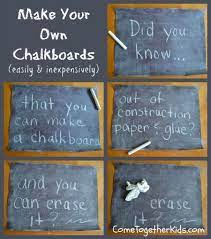 Make Your
Own
Chalkboards
(easily & inexpensively)
Did you
know...
that you
can make
a chalkboard
out of
construction
paper & glue?
and you
can erase
it?
erase
it?
ComeTogetherKids.com